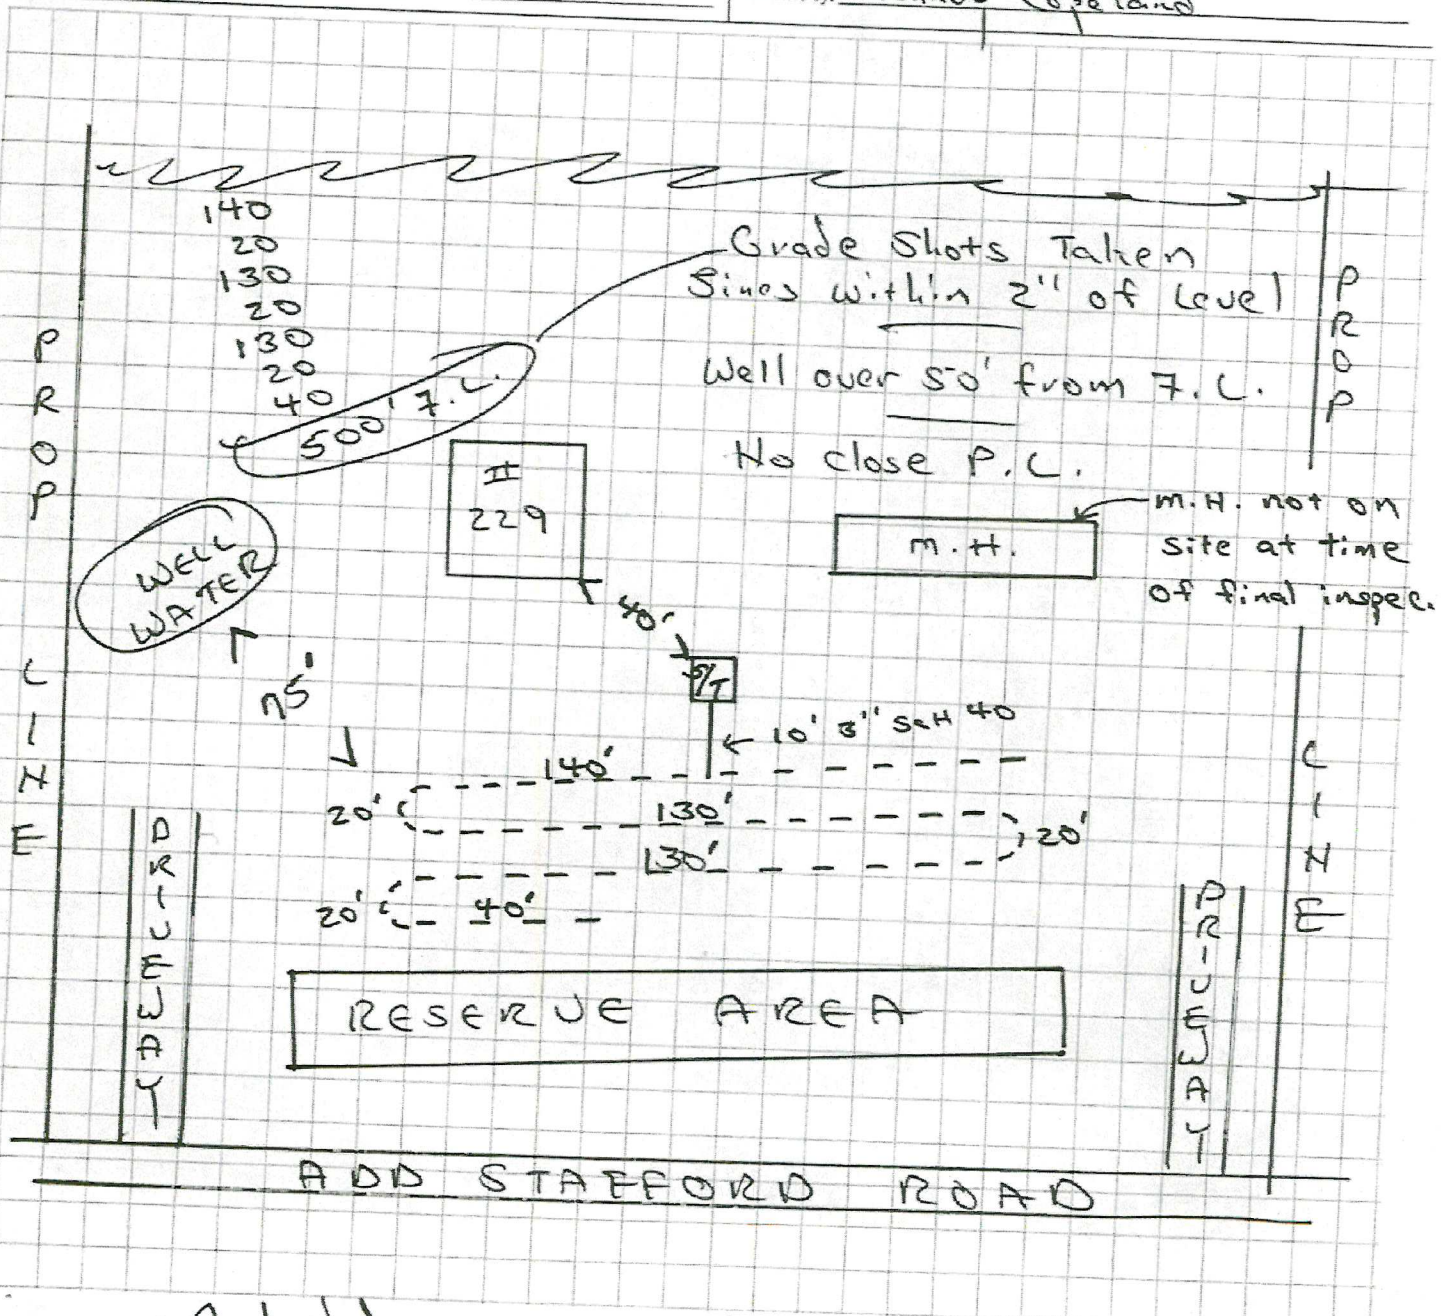 Copeland
140
20
130
20
130
20
40
500' F.L.
Grade Shots Taken
Lines within 2" of Level
Well over 50' from F.L.
No close P.L.
PROP LINE
II
229
M.H.
M.H. not on
site at time
of final inspec.
PROP LINE
WELL
WATER
75'
40'
S/T
10' 3" Sch 40
140'
20'
130'
20'
130'
20'
40'
DRIVEWAY
DRIVEWAY
RESERVE AREA
ADD STAFFORD ROAD